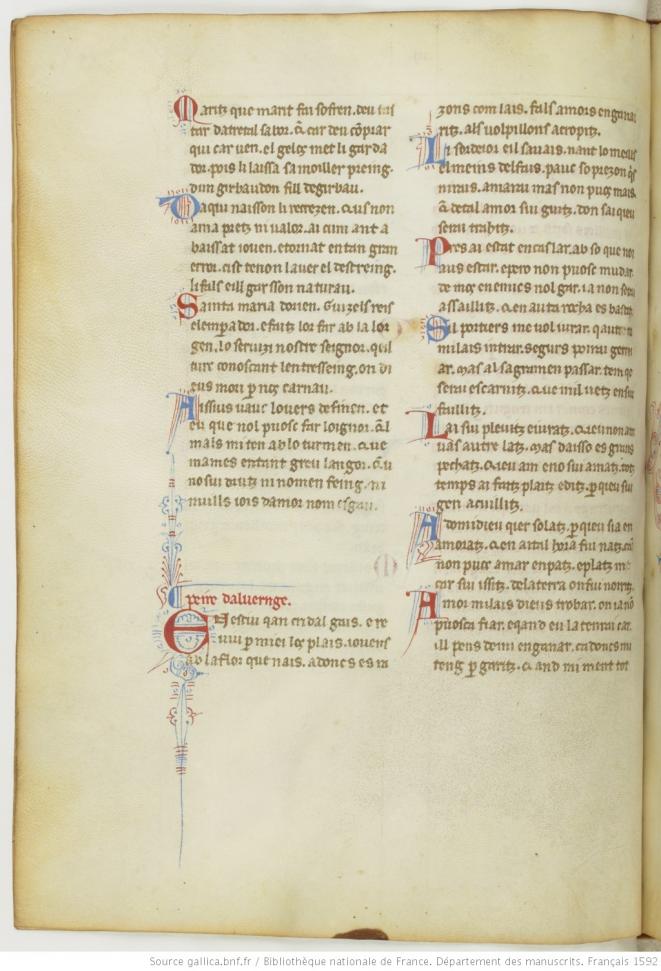 Maritz que marit fai sofren. deu tas
tar datretal sabor. q̃ car deu cõprar
qui car uen. el gelos met li garda
dor. pois li laissa sa moiller preing.
dun girbaudon fill degirbau.
Daqui naisson li recrezen. q̃us non
ama pretz ni ualor. ai cum ant a
baissat iouen. etornat en tan gran
error. cist tenon lauer el destreing.
li fals eill garsson naturau.
Sainta maria dorien. Guizels reis
elemperador. efaitz lor far ab la lor
gen. lo seruizi nostre seignor. quil
turc conoscant lentresseing. on di
eus mori p nos carnau.
Aissius uauc louers definen. et
eu que nol puosc far loignor. q̃l
mals mi ten ab lo turmen. q̃ue
mames entant greu langor. q̃u
no sui diutz ni nomen feing. ni
nuills iois damor nom esgau.
peire daluernge.
En estiu qan cridal gais. e re
uiu p miei los plais. iouens
ab la flor que nais. adoncs es ra
zons com lais. fals amors enganai
ritz. als uolpillons acropitz.
Li sordeior eil sauais. nant lo meills
elmeins delfais. pauc so prezon q̃s
nirais. amarai mas non puoc mais.
q̃ detal amor sui guitz. don sai queu
serai trahitz.
Pres ai estat en caslar. ab so que noi
aus estar. epero non puosc mudar.
de mos enemics nol gar. ia non serai
assaillitz. q̃ en auta rocha es bastitz.
Sil portiers me uol iurar. qautre
mi lais intrar. segurs poirai gerrei
ar. mas al sagramen passar. tem qe
serai escarnitz. q̃ue mil uetz en sui
faillitz.
Lai sui pleuitz eiuratz. q̃ieu non an
uas autre latz. mas daisso es grans
pechatz. q̃ieu am eno sui amatz. totz
temps ai faitz plaitz editz. p queu sui
gen acuillitz.
A domidieu qier solatz. p queu sia en
amoratz. q̃ en aital hora fui natz. can
non puoc amar enpatz. eplatz me
car sui issitz. delaterra on fui noiritz.
Amor mi lais dieus trobar. on ia no
puosca fiar. eqand eu la tenrai car.
ill pens demi enganar. cadoncs mi
teng p garitz. q̃and mi ment tot
Source gallica.bnf.fr / Bibliothèque nationale de France. Département des manuscrits. Français 1592